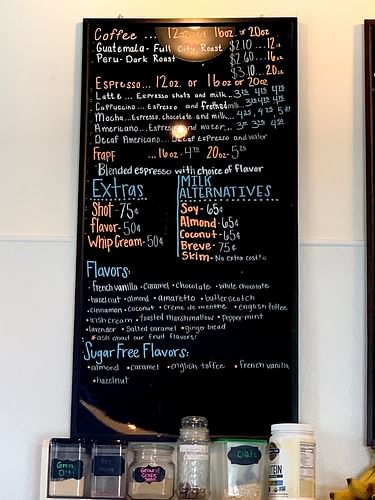 Coffee ... 12oz. or 16oz. or 20oz
Guatemala - Full City Roast $2.10 ... 12oz
Peru - Dark Roast $2.60 ... 16oz
$3.10 ... 20oz
Espresso ... 12oz. or 16oz or 20oz
Latte ... Espresso shots and milk
Cappuccino ... Espresso and frothed milk
Mocha ... Espresso, chocolate and milk
Americano ... Espresso and water
Decaf Americano ... Decaf Espresso and water
Frapf ... 16oz - 4.75 20oz - 5.25
Blended espresso with choice of flavor
Extras
Shot - 75¢
flavor - 50¢
Whip Cream - 50¢
MILK
ALTERNATIVES
Soy - 65¢
Almond - 65¢
Coconut - 65¢
Breve - 75¢
Skim - No extra cost!
Flavors:
• french vanilla • Caramel • Chocolate • White chocolate
• hazelnut • almond • amaretto • butterscotch
• cinnamon • coconut • Crème de menthe • english toffee
• Irish cream • Toasted Marshmallow • Peppermint
• lavender • Salted caramel • ginger bread
*ask about our fruit flavors!
Sugar Free Flavors:
• almond • caramel • english toffee • french vanilla
• hazelnut
Green
Chai
Ground
Oats